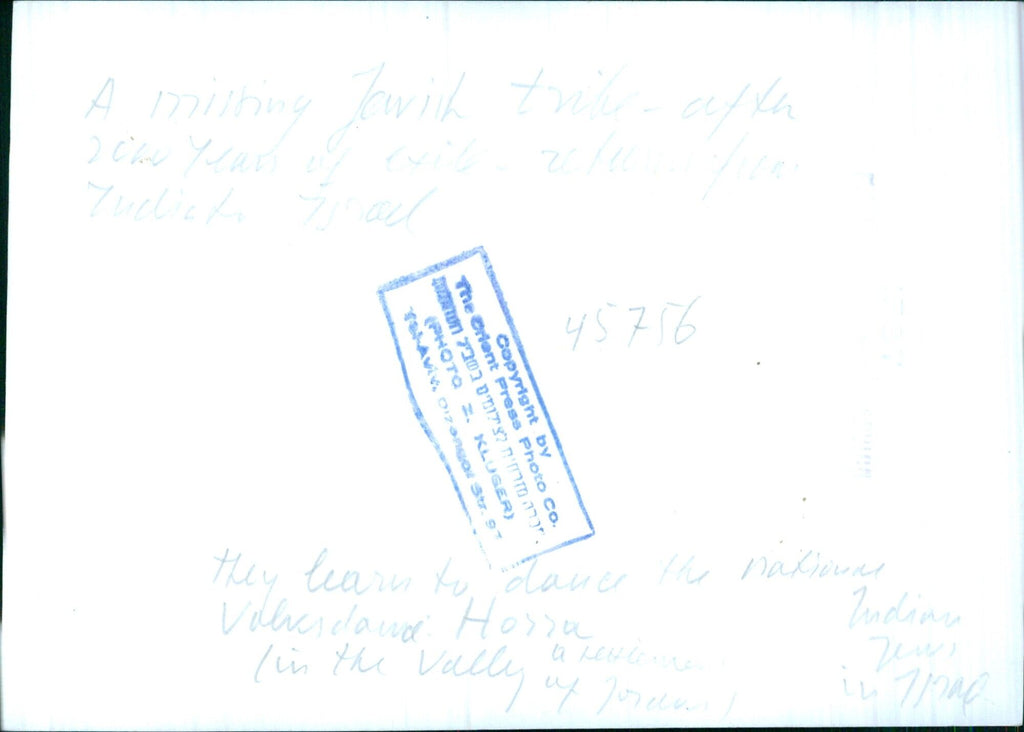 A missing Jewish tribe - after
2000 Years of exile - return from
India to Israel
Copyright by
The Orient Press Photo Co.
חברה מזרחית לצילומים
(PHOTO Z. KLUGER)
Tel-Aviv, Dizengof Str. 97
45756
they learn to dance the national
Volksdance Horra
(in the Valley of Jordan)
a settlement
Indian
Jews
in Israel